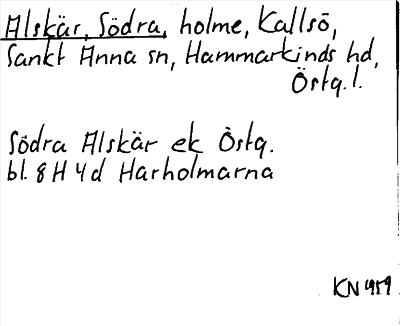 Alskär, Södra, holme, Kallsö,
Sankt Anna sn, Hammarkinds hd,
Östg. l.
Södra Alskär ek Östg.
bl. 8 H 4 d Harholmarna
KN